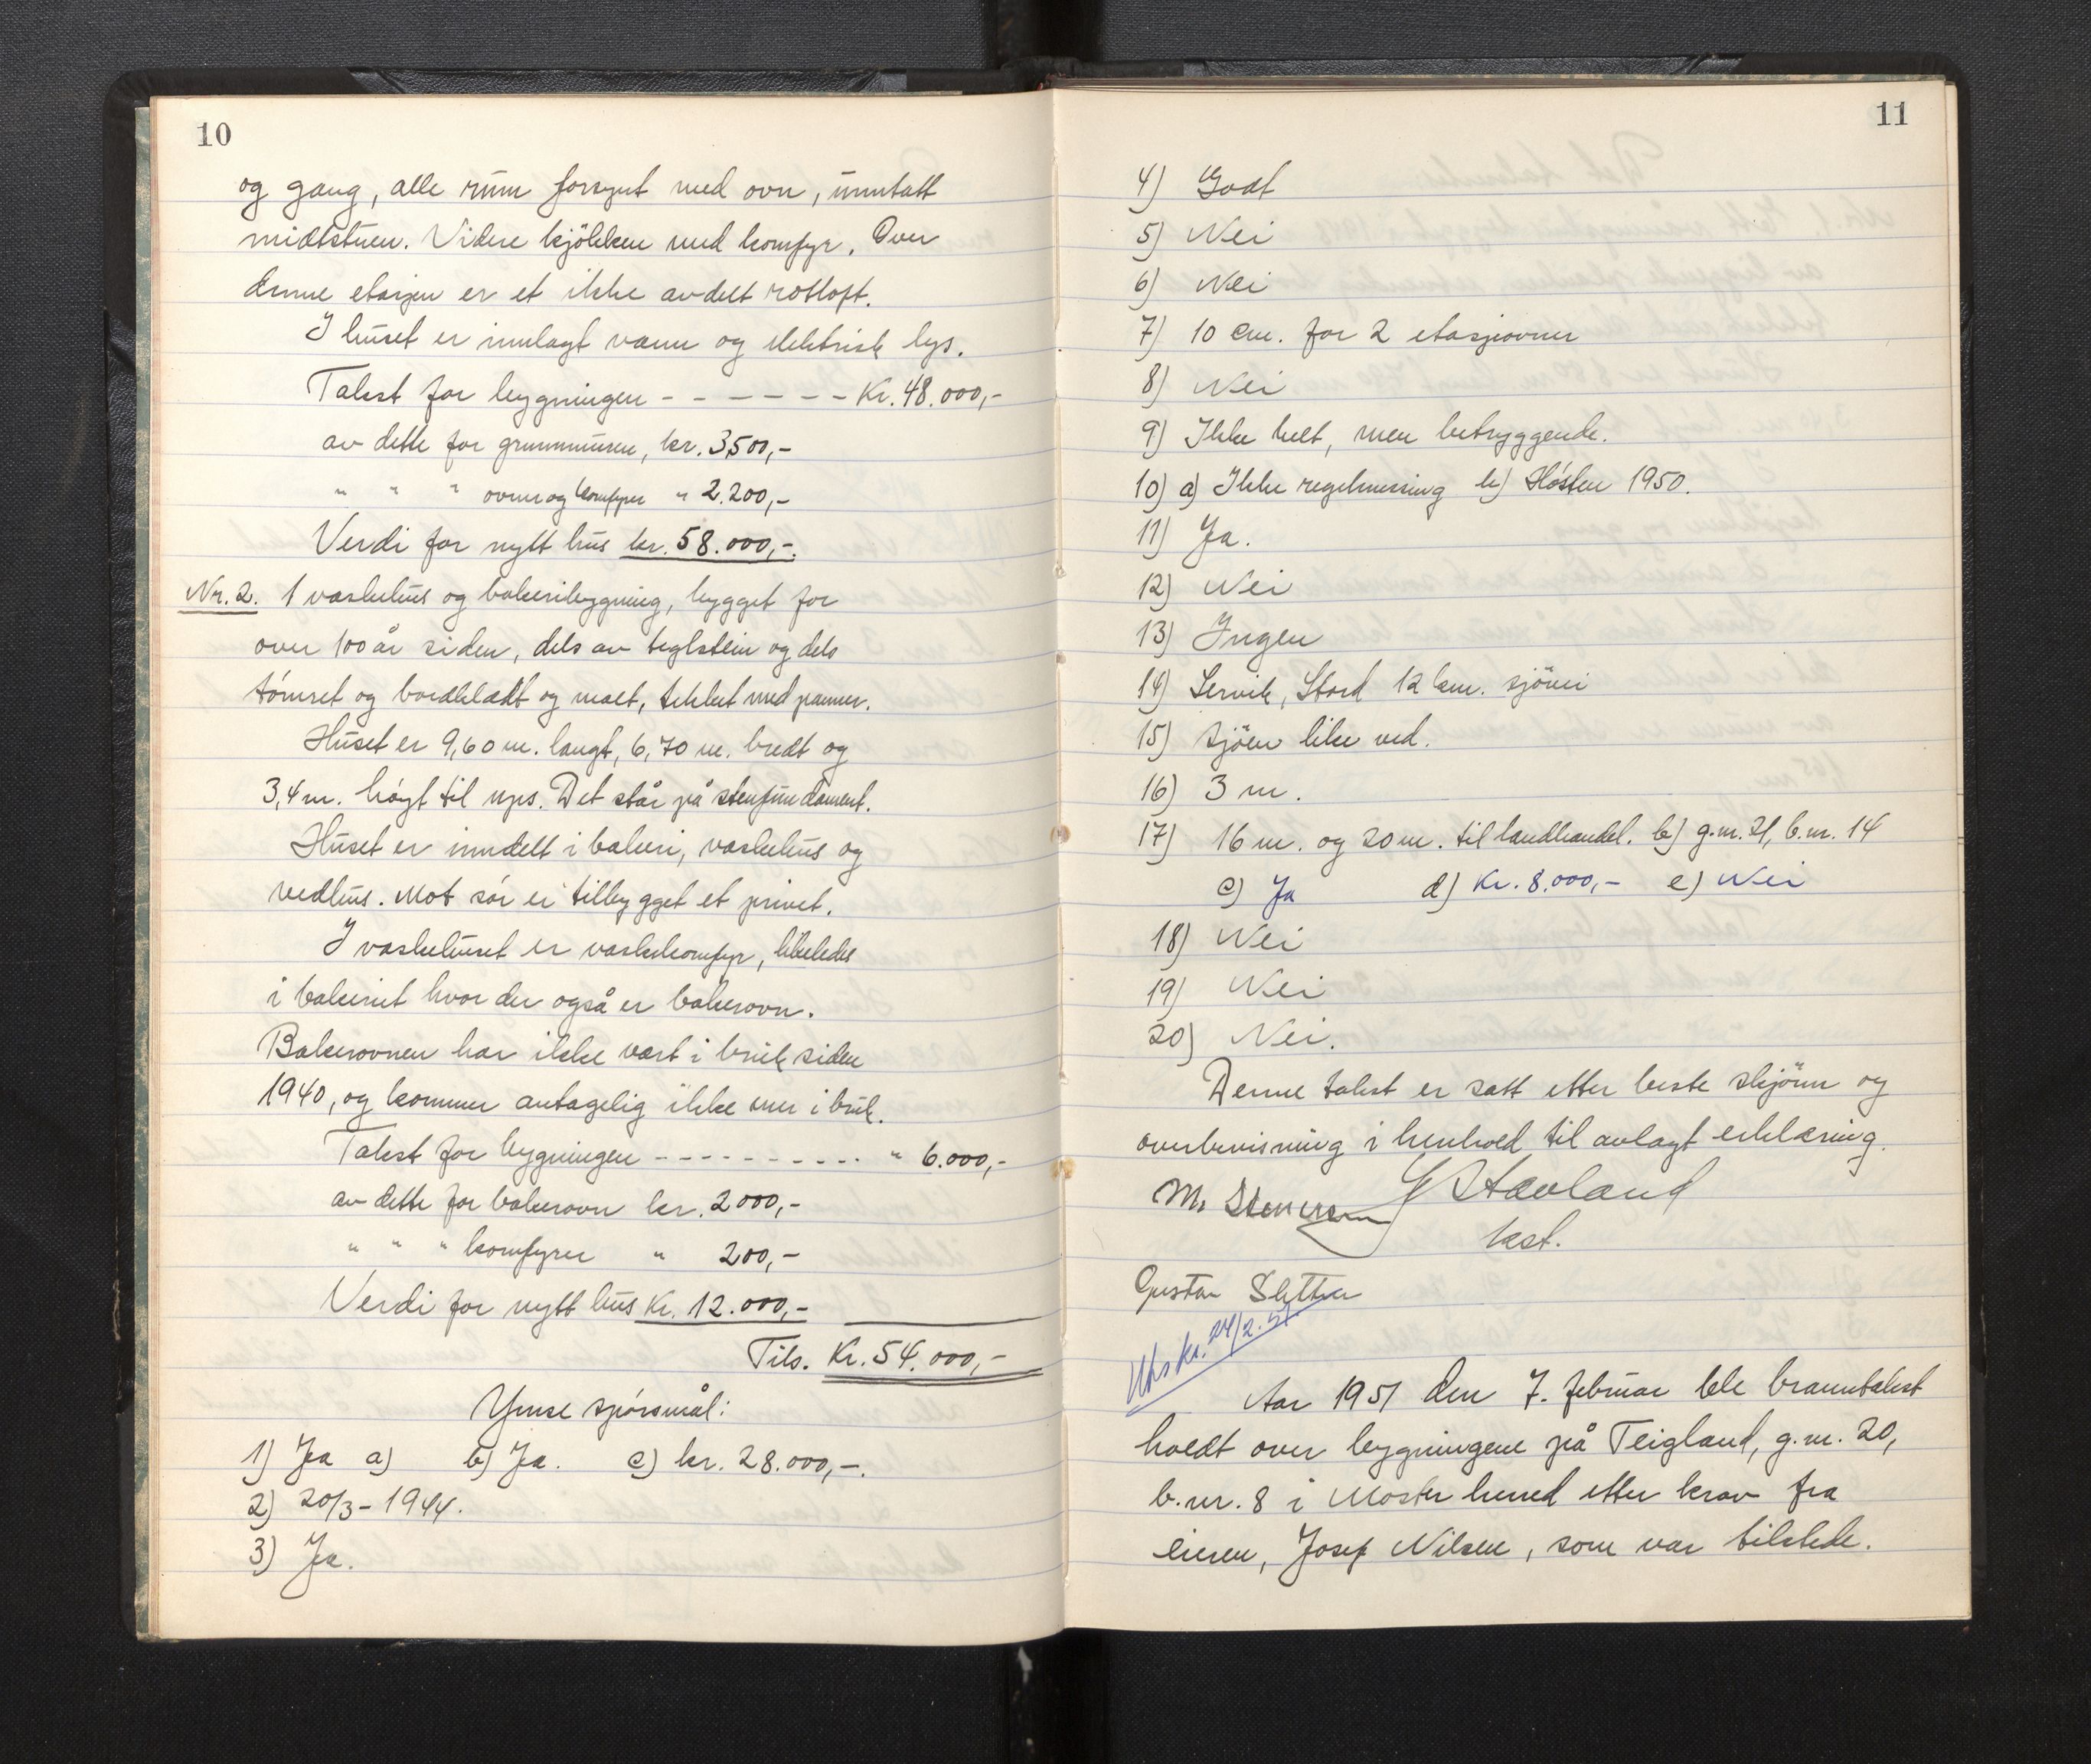 10
og gang, alle rum forsynt med ovn, unntatt
midtstuen. Videre kjökken med komfyr. Over
denne etasjen er et ikke avdelt rotloft.
I huset er innlagt vann og elektrisk lys.
Takst for bygningen - - - - - - - Kr. 48.000,-
av dette for grunnmuren, kr. 3500,-
" " " ovner og komfyrer " 2.200,-
Verdi for nytt hus kr. 58.000,-.
Nr. 2. 1 vaskehus og bakeribygning, bygget for
over 100 år siden, dels av teglstein og dels
tómret og bordkledt og malt, tekket med panner.
Huset er 9,60 m. langt, 6,70 m. bredt og
3,4 m. högt til ups. Det står på stenfundament.
Huset er inndelt i bakeri, vaskehus og
vedhus. Mot sör er tilbygget et privet.
I vaskehuset er vaskekomfyr, likeledes
i bakeriet hvor der også er bakerovn.
Bakerovnen har ikke vært i bruk siden
1940, og kommer antagelig ikke mer i bruk.
Takst for bygningen - - - - - - - - - - " 6.000,-
av dette for bakerovn kr. 2000,-
" " " komfyrer " 200,-
Verdi for nytt hus Kr. 12.000,-
Tils. Kr. 54.000,-
Ymse spörsmål:
1) Ja a) b) Ja. c) kr. 28.000,-.
2) 20/3 - 1944.
3) Ja.
11
4) Godt
5) Nei
6) Nei
7) 10 cm. for 2 etasjeovner
8) Nei
9) Ikke helt, men betryggende.
10) a) Ikke regelmessing b) Hösten 1950.
11) Ja.
12) Nei
13) Ingen
14) Lervik, Stord 12 km. sjövei
15) Sjöen like ved.
16) 3 m.
17) 16 m. og 20 m. til landhandel. b) g.nr. 21, b.nr. 14
c) Ja d) Kr. 8.000,- e) Nei
18) Nei
19) Nei
20) Nei.
Denne takst er satt etter beste skjönn og
overbevisning i henhold til avlagt erklæring.
Stavland
M.
kst.
Gustav Sletten
Utskr. 24/2.51
Aar 1951 den 7. februar ble branntakst
holdt over bygningene på Teigland, g.nr. 20,
b.nr. 8 i Moster herred etter krav fra
eieren, Josef Nilsen, som var tilstede.